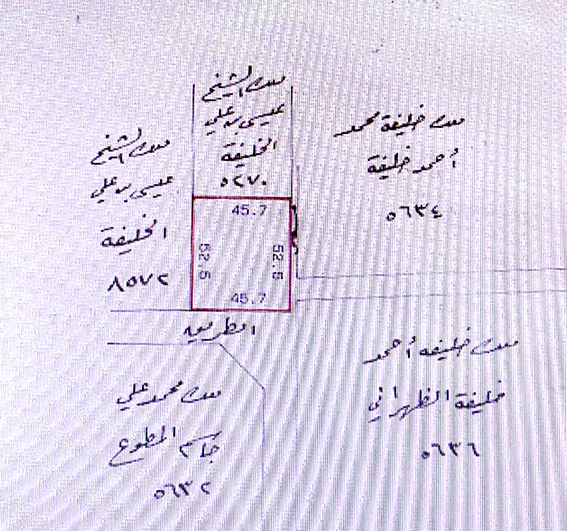 ملك الشيخ
عيسى بن علي
الخليفة
٥٢٧٠
ملك خليفة محمد
أحمد خليفة
٥٦٣٤
ملك الشيخ
عيسى بن علي
الخليفة
٨٥٧٢
45.7
52.5
52.5
45.7
الطريق
ملك خليفه أحمد
خليفة الظهراني
٥٦٣٦
ملك محمد علي
جاسم المطوع
٥٦٣٢